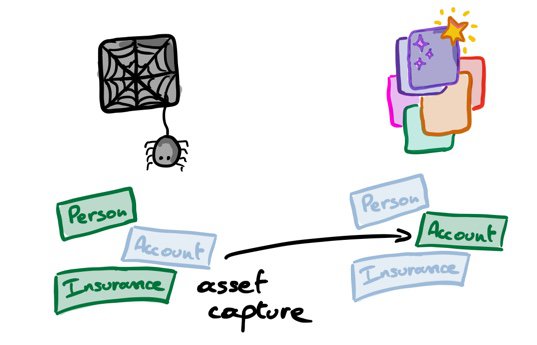 Person
Account
Insurance
asset
capture
Person
Account
Insurance